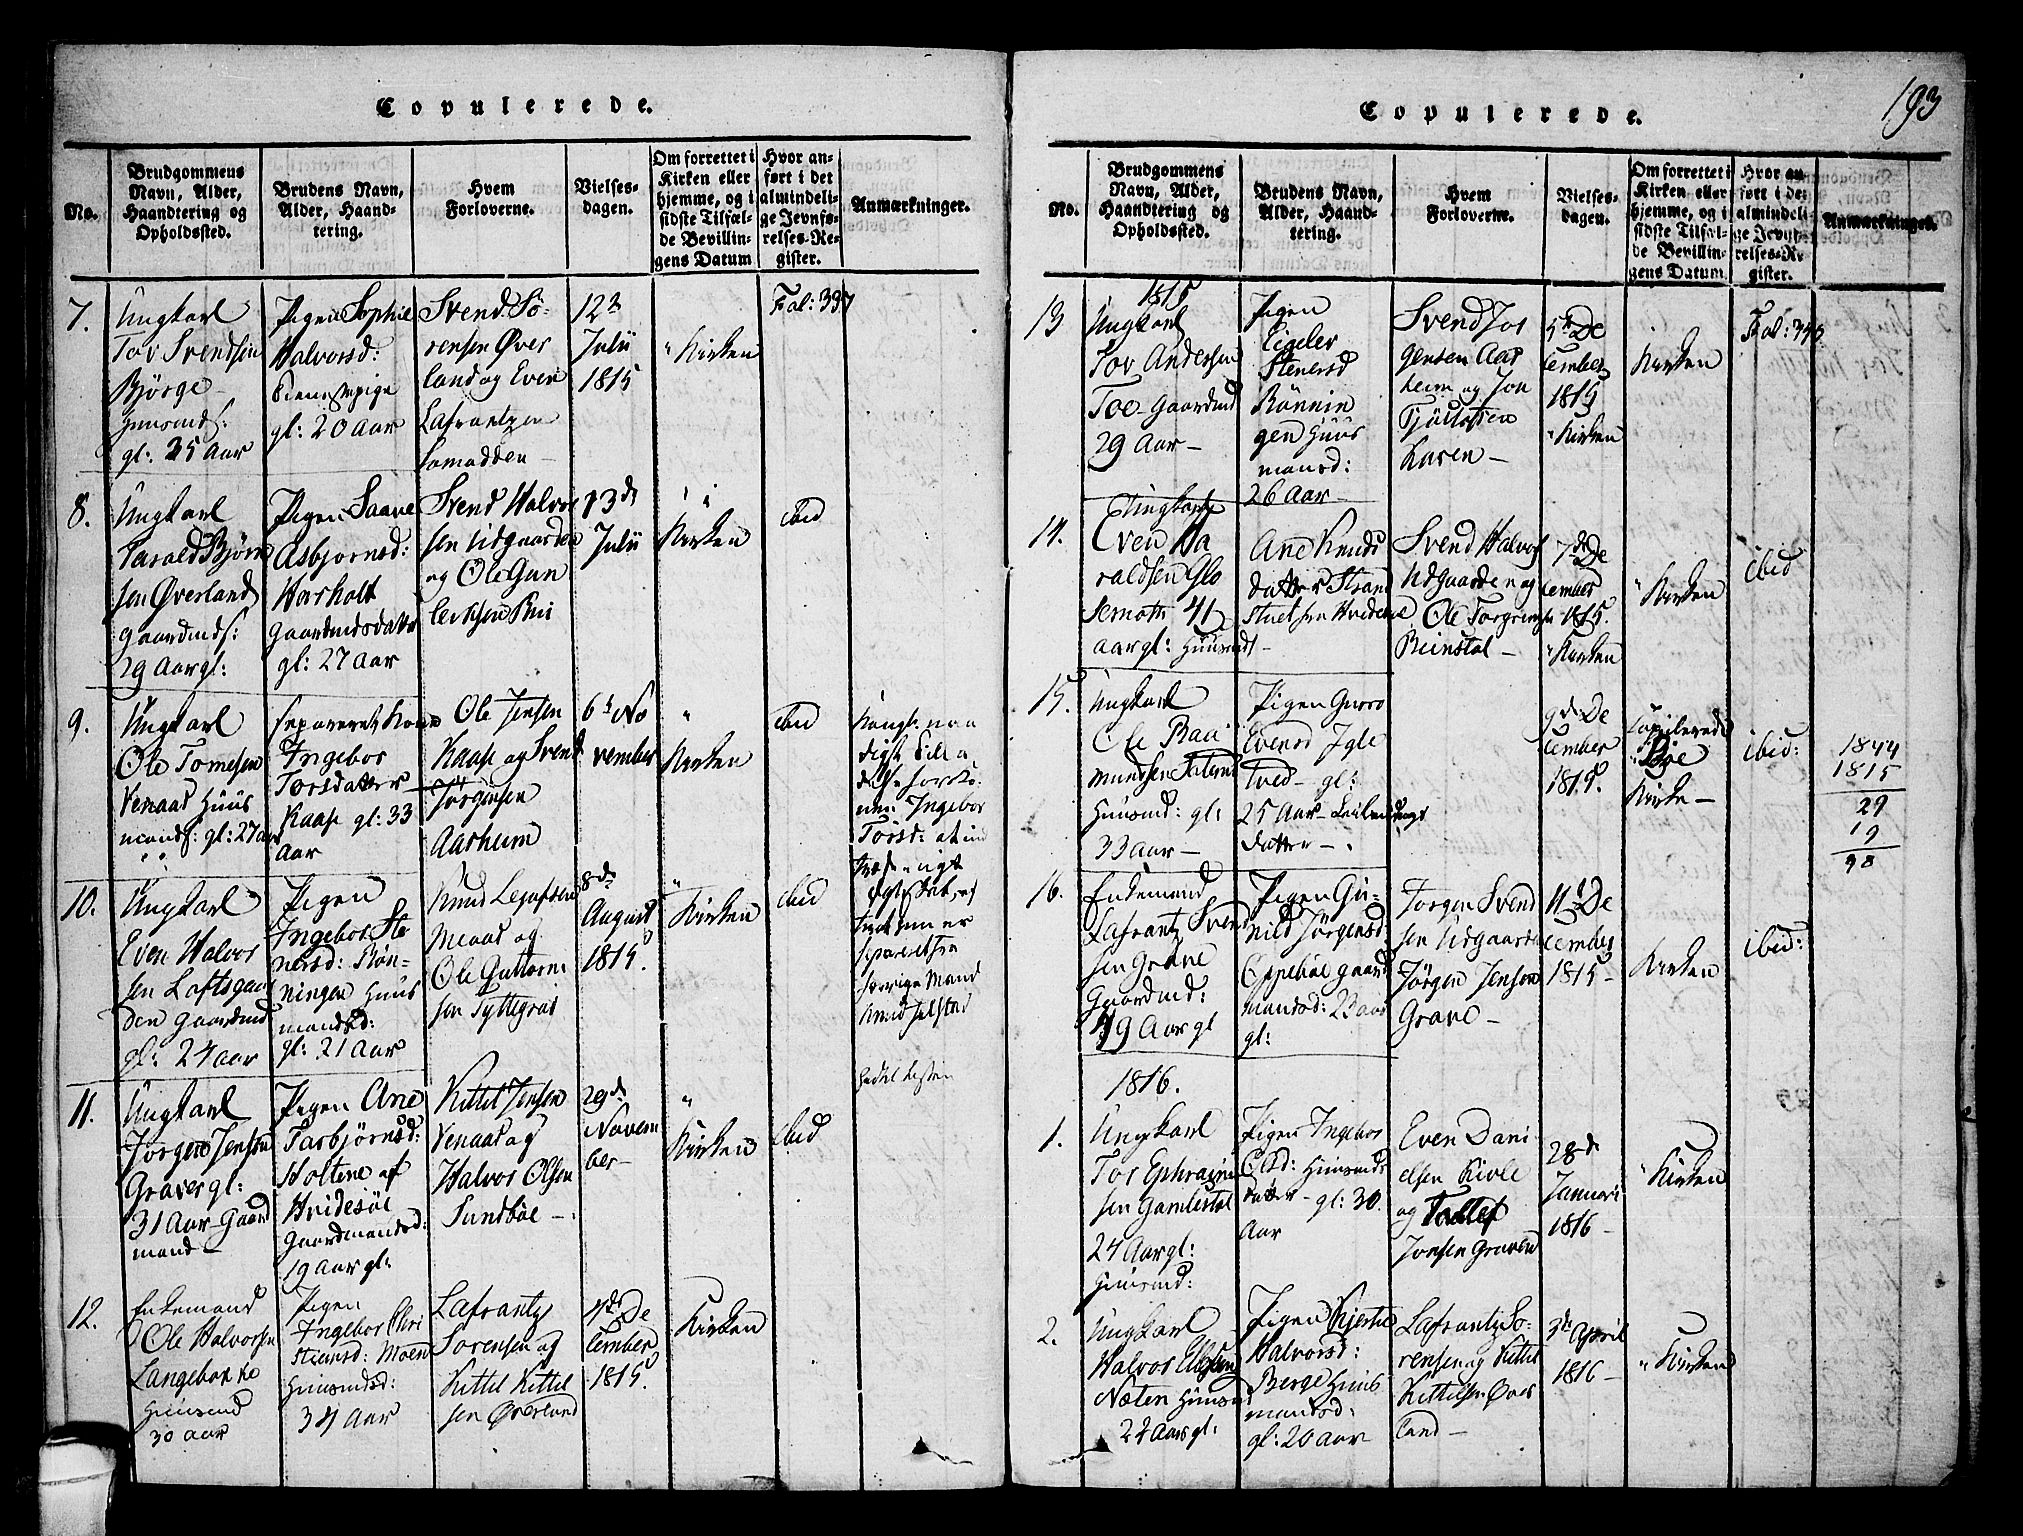 Copulerede.
No.
Brudgommens
Navn, Alder,
Haandtering og
Opholdssted.
Brudens Navn,
Alder, Haand-
tering.
Hvem
Forloverne.
Vielses-
dagen.
Om forrettet i
Kirken eller
hjemme, og i
sidste Tilfæl-
de Bevillin-
gens Datum
Hvor an-
ført i det
almindeli-
ge Jevnfø-
relses-Re-
gister.
Anmærkninger.
7.
Ungkarl
Tov Svendsen
Bjørge
Huusmds:
gl: 25 Aar
Pigen Sophie
Halvorsd:
gl: 20 Aar
Svend Sø-
rensen Øver
land og Even
Lafrantzen
12
Julii
1815
Kirken
Fol: 337
8.
Ungkarl
Tarald Bjørn
sen Øverland
gaardmds:
29 Aar gl:
Pigen Saave
Asbjørnsd:
Haesholt
gaardmdsdatter
gl: 27 Aar
Svend Halvor
sen Udgaarden
og Ole Gun
13de
Julii
i
Kirken
ibid
9.
Ungkarl
Ole Tomesen
Venaas Huus
mands: gl: 27 aar
separeret Kone
Ingebor
Torsdatter
Kaase gl: 33
Aar
Ole Jensen
Kaase og Svend
Jørgensen
Aarhuum
6te No
vember
Kirken
ibid
Kongl: naa
digst Tilla
delse
Ingebor
Torsd: at ind
træde i nyt
Egteskab,
hun er
separeret fra
forrige Mand
10.
Ungkarl
Even Halvor
sen Loftsgaar
den Gaardmd
gl: 24 aar
Pigen
Ingebor Ste
nersd: Røn-
ningen Huus
mandsd:
gl: 21 Aar
Knud Legufsen
Meaas og
Ole Guttorm
sen Tyttegraf
8de
August
1815.
Kirken
ibid
11.
Ungkarl
Jørgen Jensen
Graver gl:
31 Aar Gaard
mand
Pigen Ane
Tarbjørnsd:
Holtene af
Hvidesøe
Gaardmandsd:
19 Aar gl:
Kittil Jensen
Venaas og
Halvor Olsen
Sundbøe
29de
Novem
ber
Kirken
ibid
12.
Enkemand
Ole Halvorsen
Langebakke
Huusmd
30 aar
Pigen
Ingebor Chri
stiensd: Moen
Huusmdsd:
34 Aar
Lafrantz
Sørensen og
Kittel Kittel
sen Øverland
4de De
cember
1815.
Kirken
Copulerede.
193
No.
Brudgommens
Navn, Alder,
Haandtering og
Opholdssted.
Brudens Navn,
Alder, Haand-
tering.
Hvem
Forloverne.
Vielses-
dagen.
Om forrettet i
Kirken eller
hjemme, og i
sidste Tilfæl-
de Bevillin-
gens Datum
Hvor an-
ført i det
almindeli-
ge Jevnfø-
relses-Re-
gister.
Anmærkninger.
1815
13
Ungkarl
Tov Andersen
Toe Gaardmd
29 Aar
Pigen
Stenersd
Rønnin
gen Huus
mansd:
26 Aar
Svend Jør
gensen Aar
heim og Jon
5te De
cember
1815
Kirken
Kirken
14.
Ungkarl
Even Ha
raldsen Glo
41
aar gl: Huusmds
Ane Knuds
datter Strand
Svend Halvors
Udgaarden og
Ole Torgrimsen
Reinstal
7de De
cember
1815.
Kirken
Kirken
ibid
15.
Ungkarl
Ole
mundsen
Huusmd: gl:
33 Aar
Pigen Guro
Evensd Igle
tved gl:
25 Aar
datter
9de De
cember
1815.
Copulerede
Bøe
Kirke
ibid:
1844
1815
29
19
98
16.
Enkemand
Lafrantz Svend
sen Grave
Gaardmd:
49 Aar gl
Pigen Gu-
nild Jørgensd:
Oppebøe gaard
mandsd: 23 aar
gl:
Jørgen Svend
sen Udgaarden
Jørgen Jensen
Grave
11te De
cember
1815
Kirken
ibid:
1816.
1.
Ungkarl
Tor Ephraim
sen Gamlestøl
24 Aar gl:
Huusmd:
Pigen Ingebor
Olsd: Huusmds
datter gl: 30.
Aar
Even Dani
elsen Kivle
og Tollef
Jonsen Graver
28de
Januari
1816
Kirken
2.
Ungkarl
Halvor
Næten Huusmd
22 Aar gl:
Pigen Kjersti
Halvorsd:
Berge Huus
mandsd:
gl: 20 aar
Lafrantz Sø-
rensen og Kittel
Kittelsen Øver
land
3de April
1816
Kirken